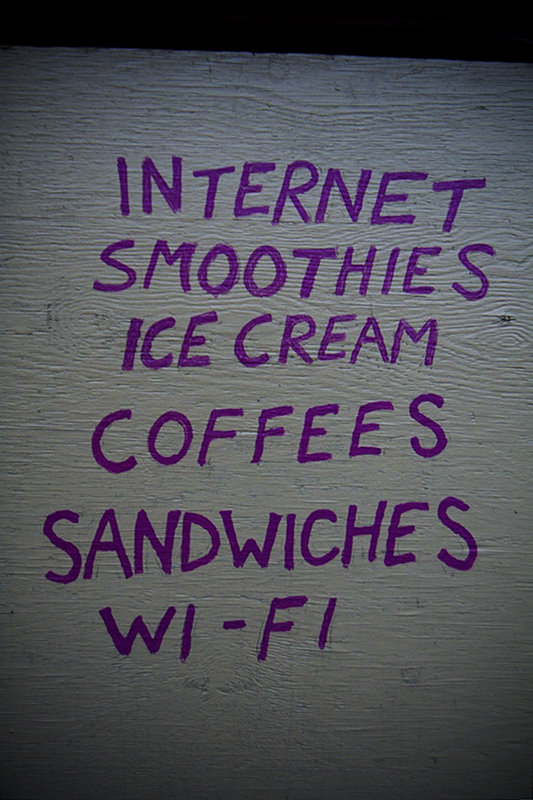 INTERNET
SMOOTHIES
ICE CREAM
COFFEES
SANDWICHES
WI-FI